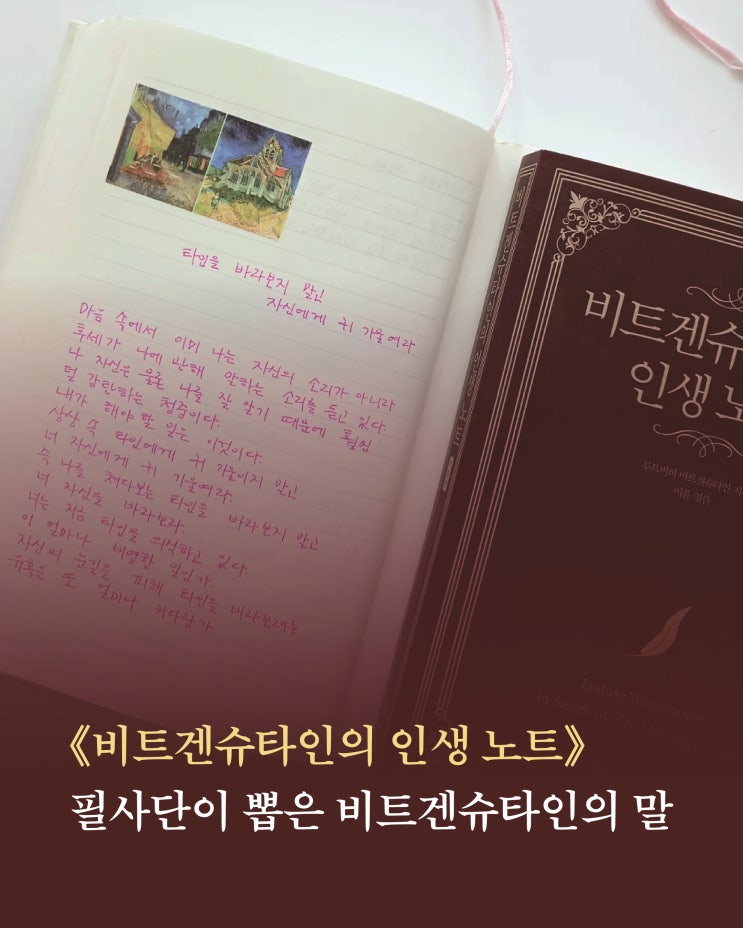 타인을 바라보지 말고
자신에게 귀 기울여라
마음 속에서 이미 나는 자신의 소리가 아니라
후세가 나에 관해 말하는 소리를 듣고 있다.
나 자신은 물론 나를 잘 알기 때문에 훨씬
덜 감탄하는 청중이다.
내가 해야 할 일은 이것이다.
상상 속 타인에게 귀 기울이지 말고
너 자신에게 귀 기울여라.
즉 나를 쳐다보는 타인을 바라보지 말고
너 자신을 바라보라.
너는 지금 타인을 의식하고 있다.
이 얼마나 비열한 일인가.
자신의 눈길을 피해 타인을 바라보려는
유혹은 또 얼마나 커다란가.
비트겐슈타인의 인생 노트
비트겐슈
인생 노
루트비히 비트겐슈타인 지
이윤 엮음
Ludwig Wittgenstein
In Search of The Meaning of
《비트겐슈타인의 인생 노트》
필사단이 뽑은 비트겐슈타인의 말